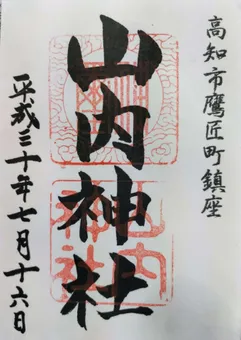 高知市鷹匠町鎮座
山内神社
平成三十年七月十六日